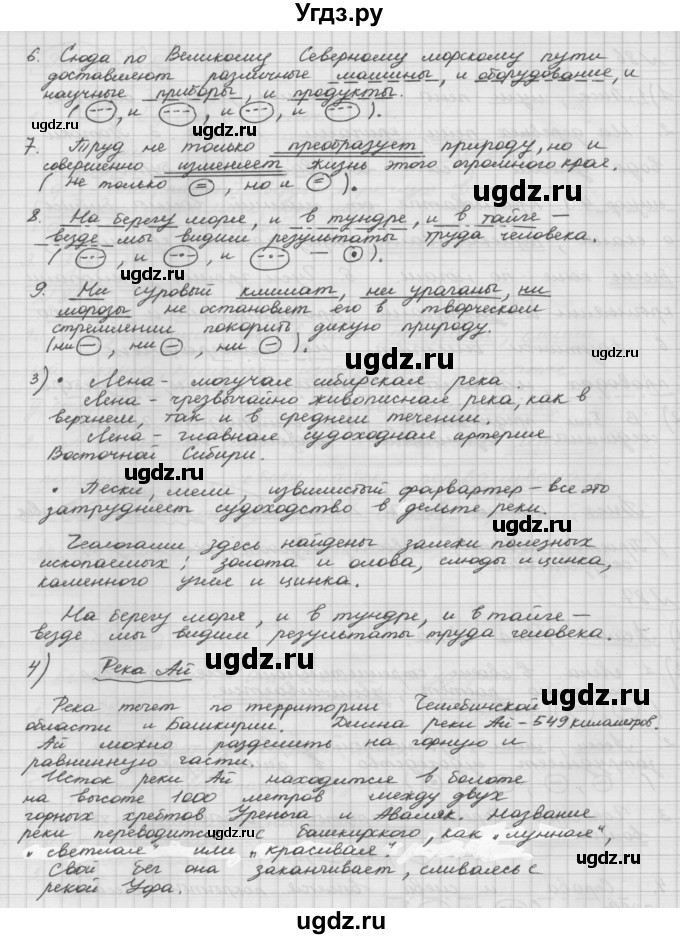 Угдз.ру
6. Сюда по Великому Северному морскому пути
доставляют различные машины, и оборудование, и
научные приборы, и продукты.
( , и , и , и ).
7. Труд не только преобразует природу, но и
совершенно изменяет жизнь этого огромного края.
( не только = , но и = ).
8. На берегу моря, и в тундре, и в тайге –
везде мы видим результаты труда человека.
( , и , и — ).
9. Ни суровый климат, ни ураганы, ни
морозы не остановят его в творческом
стремлении покорить дикую природу.
(ни – , ни – , ни – ).
3) • Лена – могучая сибирская река.
Лена – чрезвычайно живописная река, как в
верхнем, так и в среднем течении.
Лена – главная судоходная артерия
Восточной Сибири.
• Пески, мели, извилистый фарвартер – все это
затрудняет судоходство в дельте реки.
Геологами здесь найдены залежи полезных
ископаемых; золота и олова, слюды и цинка,
каменного угля и цинка.
На берегу моря, и в тундре, и в тайге –
везде мы видим результаты труда человека.
4) Река Ай
Река течет по территории Челябинской
области и Башкирии. Длина реки Ай – 549 километров.
Ай можно разделить на горную и
равнинную части.
Исток реки Ай находится в болоте
на высоте 1000 метров между двух
горных хребтов Уреньга и Аваляк. Название
реки переводится с башкирского, как „лунная",
„светлая" или „красивая".
Свой бег она заканчивает, сливаясь с
рекой Уфа.
ugdz.ru